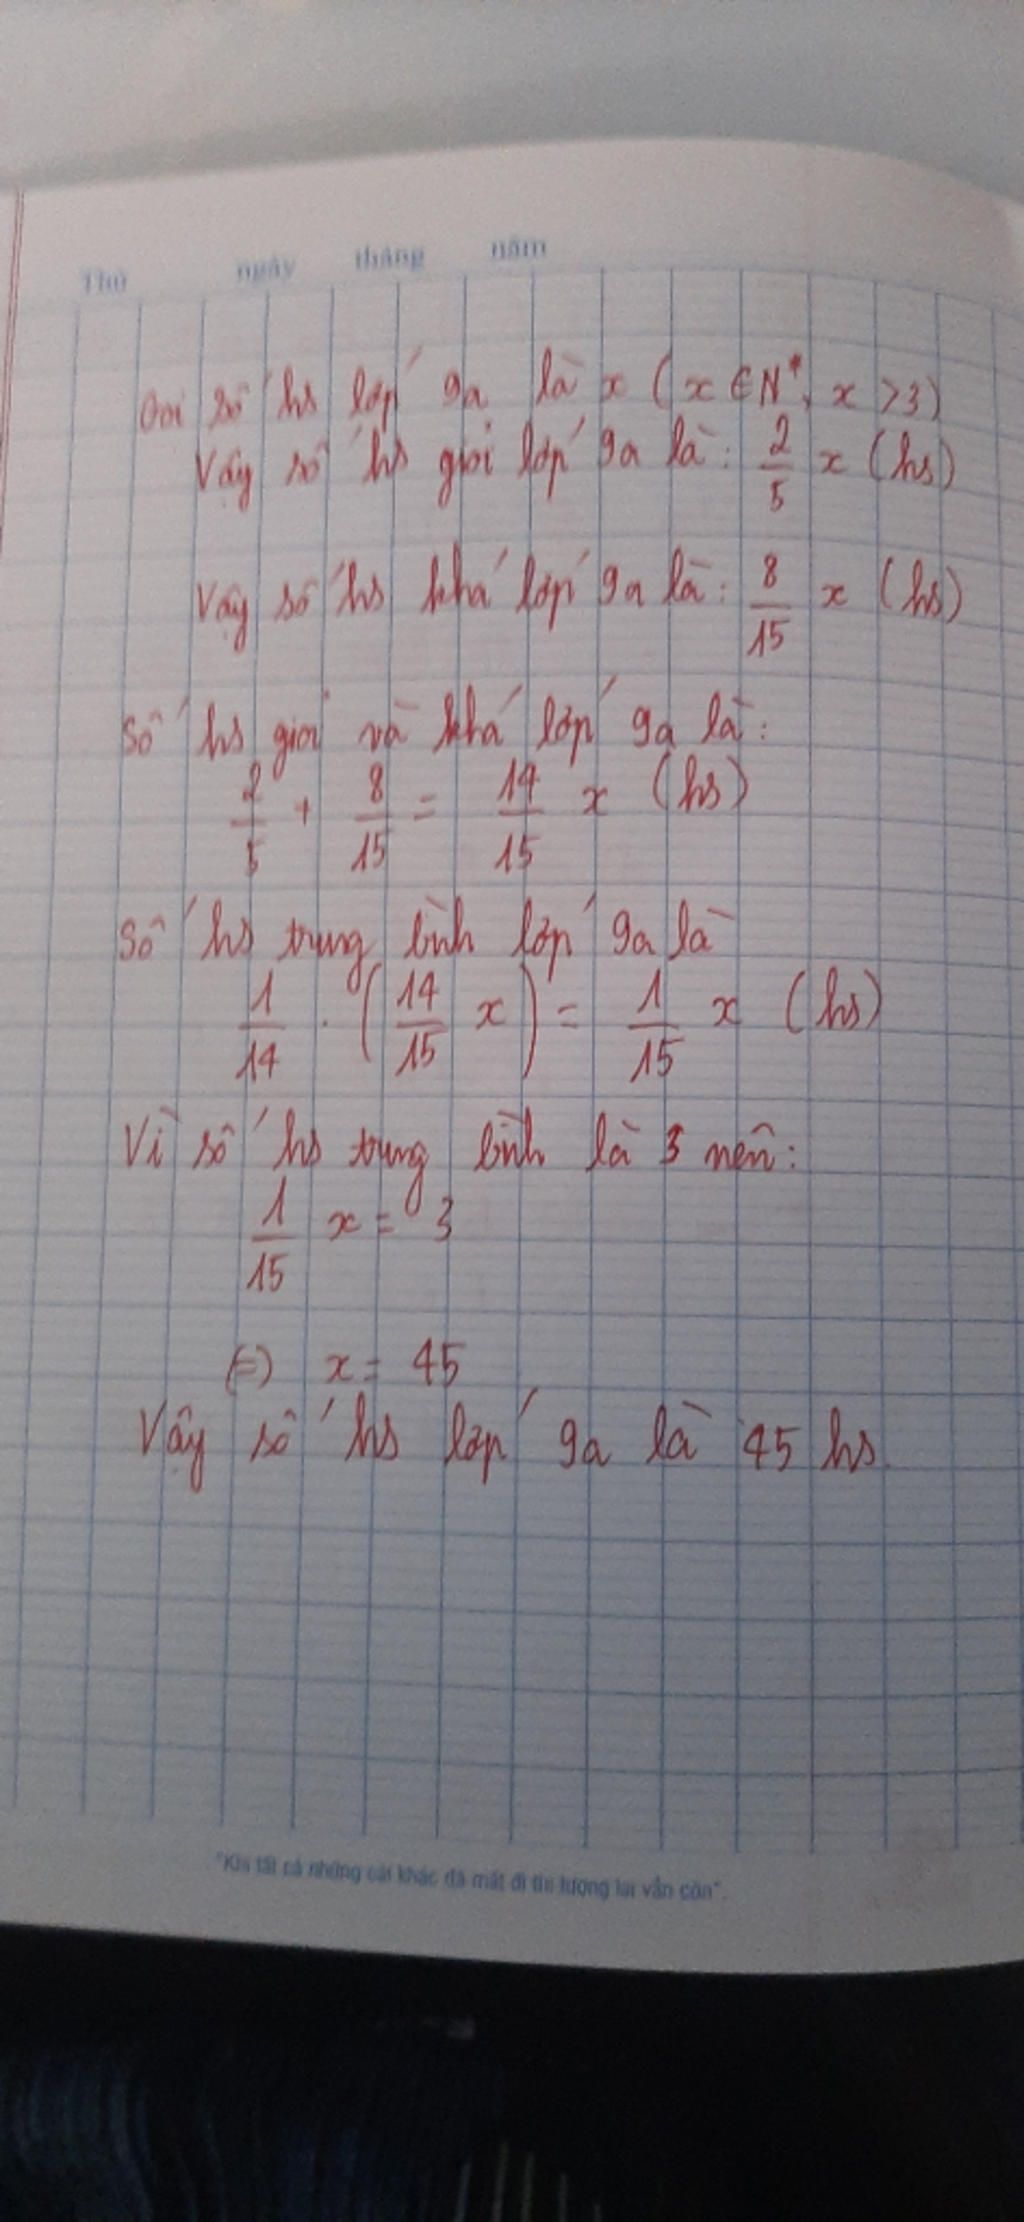 Thứ ngày tháng năm
Gọi số hs lớp 9a là x ( x ∈ N*, x > 3)
Vậy số hs giỏi lớp 9a là: 2/5 x (hs)
Vậy số hs khá lớp 9a là: 8/15 x (hs)
Số hs giỏi và khá lớp 9a là:
2/5 + 8/15 = 14/15 x (hs)
Số hs trung bình lớp 9a là
1/14 . (14/15 x) = 1/15 x (hs)
Vì số hs trung bình là 3 nên:
1/15 x = 3
(=) x = 45
Vậy số hs lớp 9a là 45 hs.
"Khi tất cả những cái khác đã mất đi thì tương lai vẫn còn".